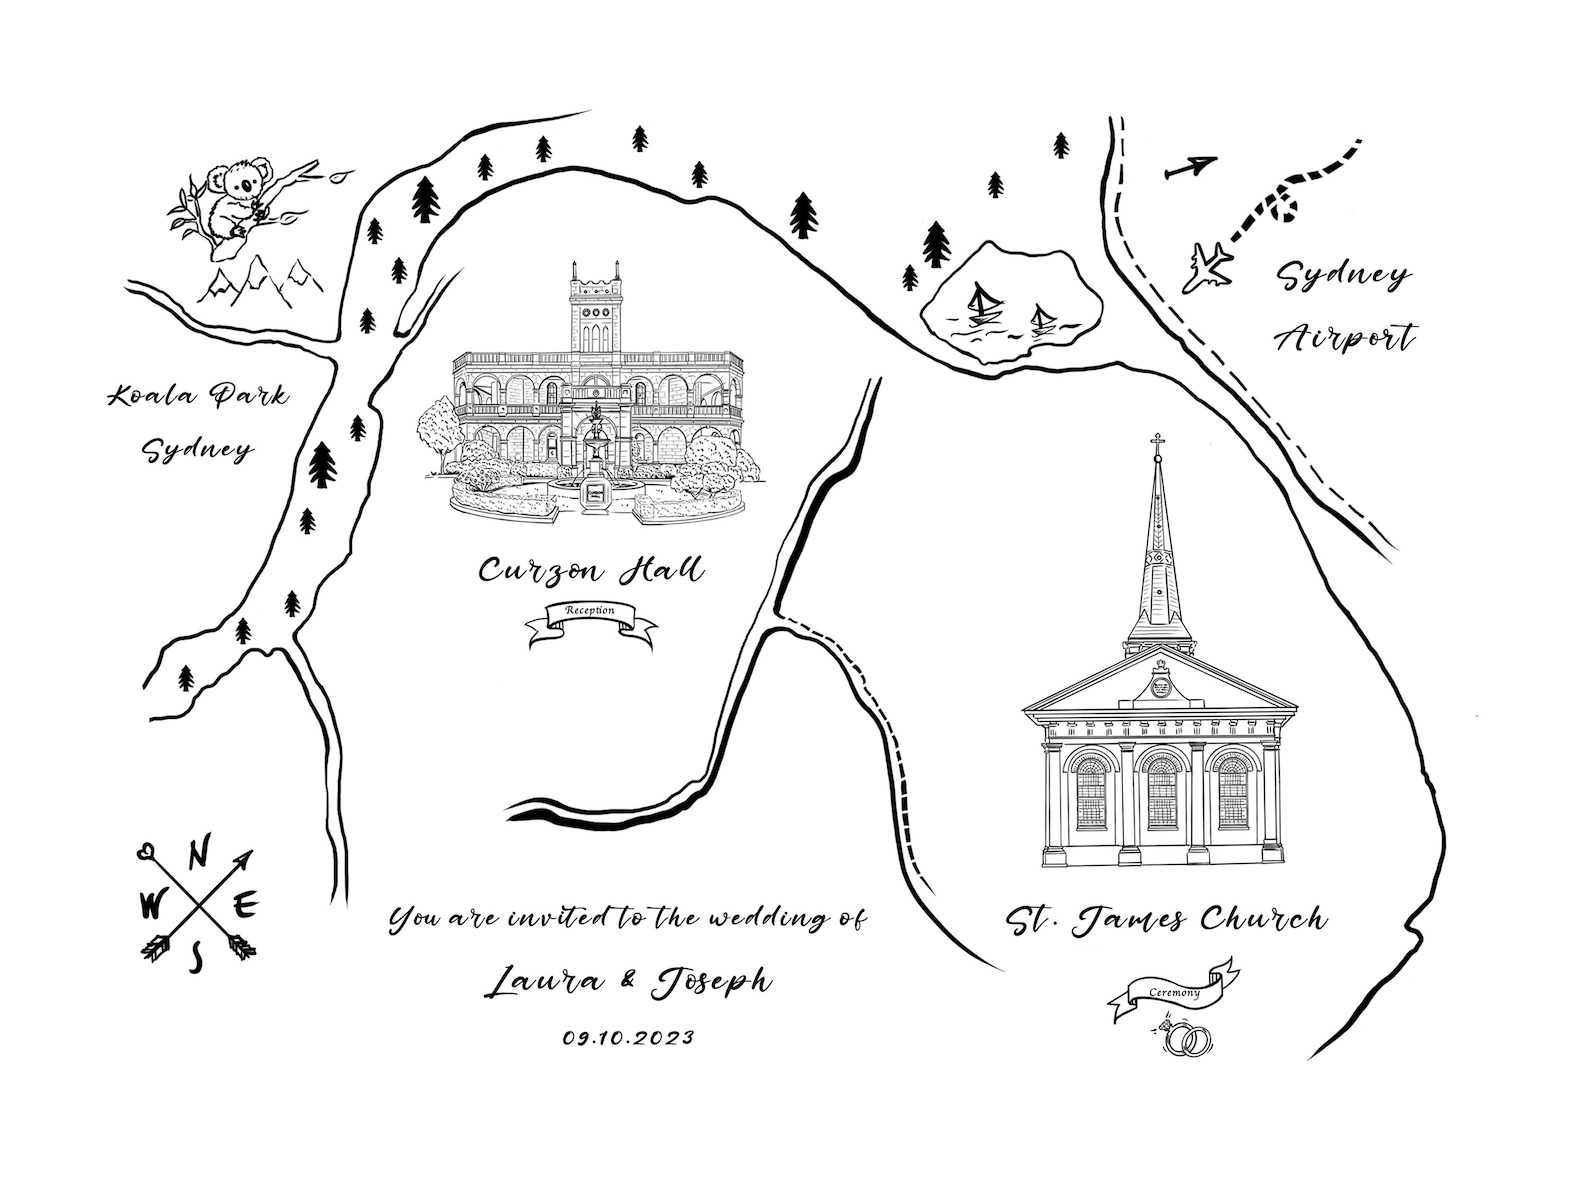 Sydney
Airport
Koala Park
Sydney
CURZON
HALL
Curzon Hall
Reception
N
W E
S
You are invited to the wedding of
Laura & Joseph
09.10.2023
St. James Church
Ceremony